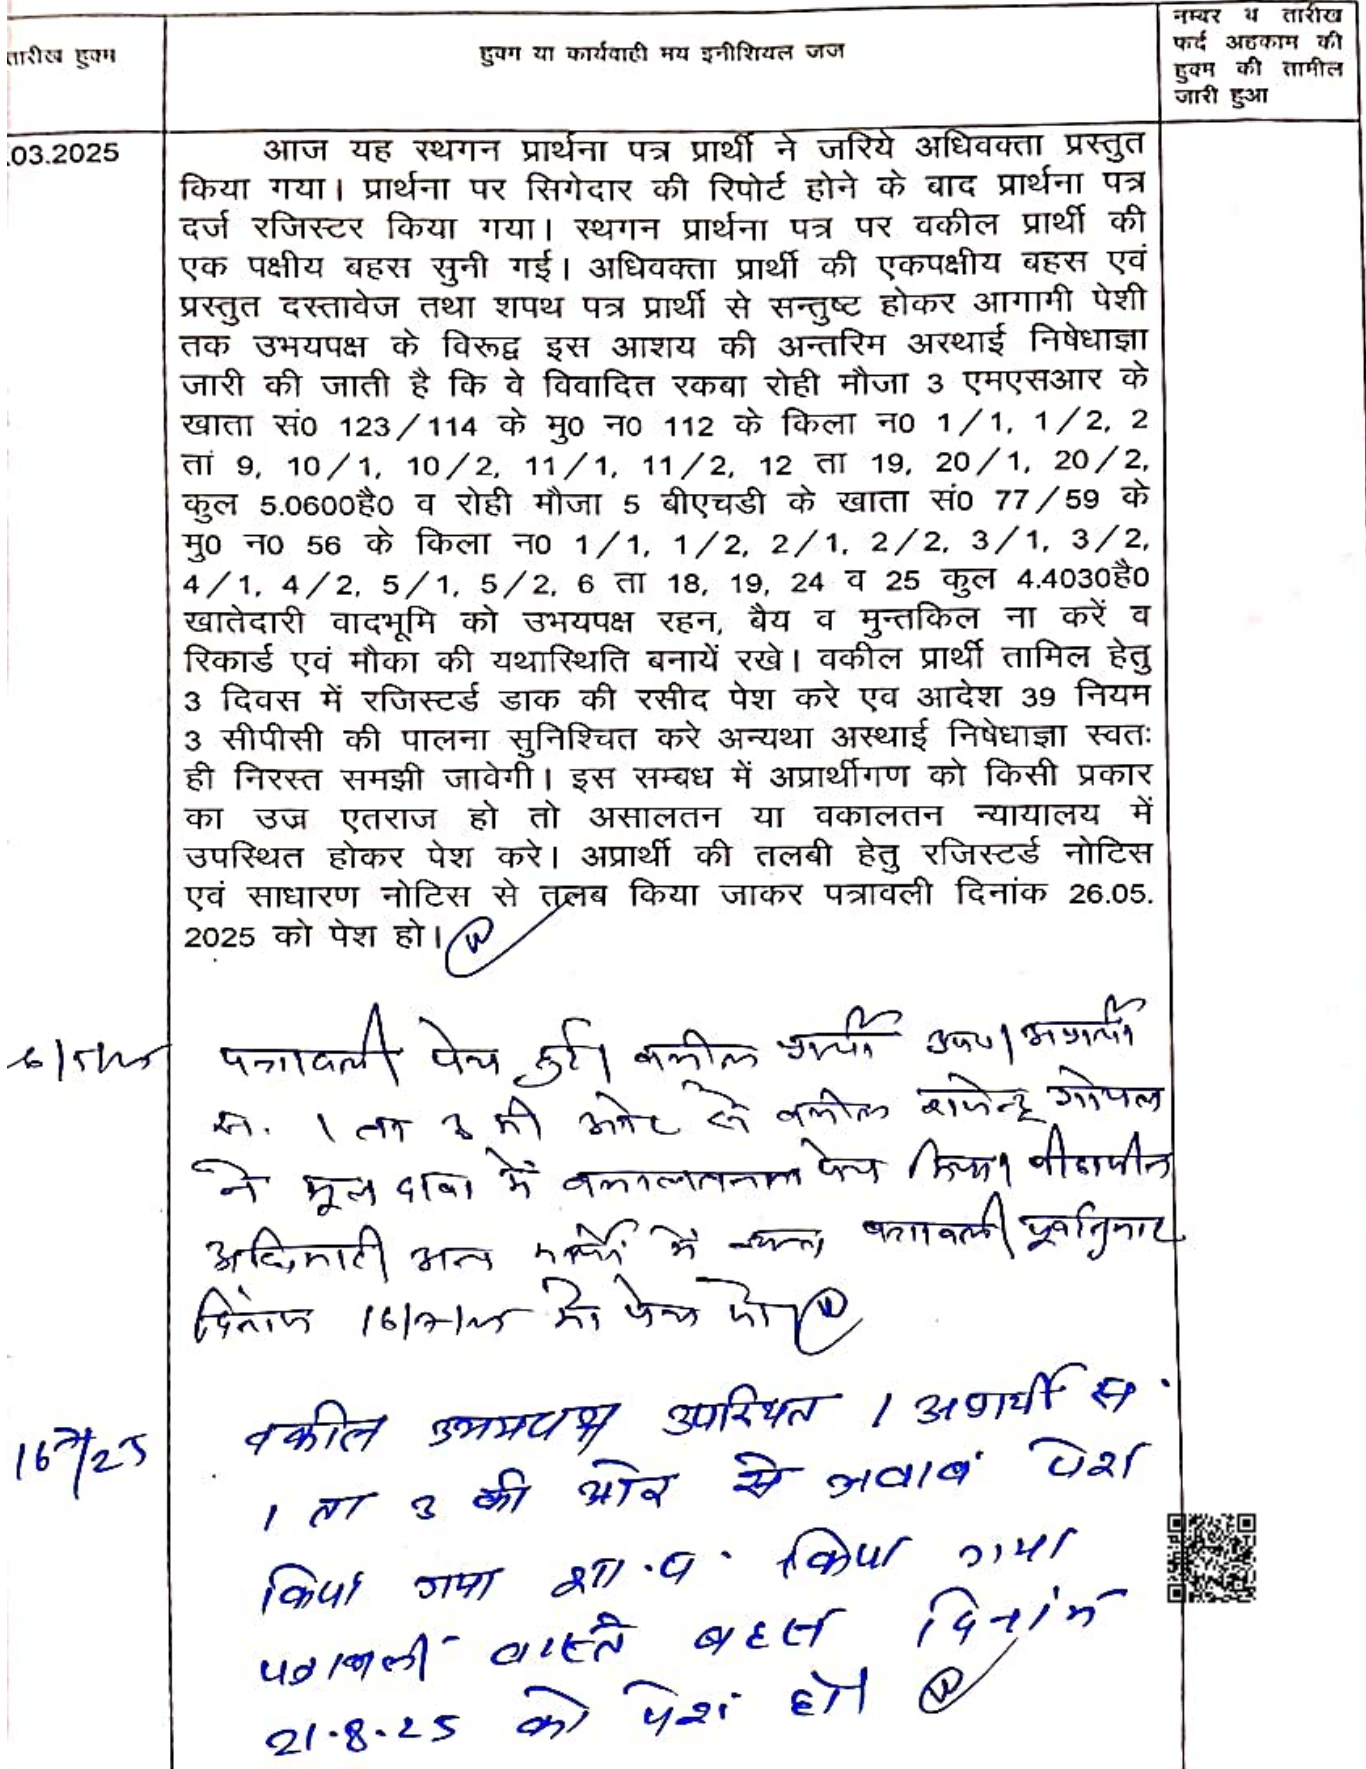 तारीख हुक्म
हुक्म या कार्यवाही मय इनीशियल जज
नम्बर व तारीख
फर्द अहकाम की
हुक्म की तामील
जारी हुआ
.03.2025
आज यह स्थगन प्रार्थना पत्र प्रार्थी ने जरिये अधिवक्ता प्रस्तुत
किया गया। प्रार्थना पर सिगेदार की रिपोर्ट होने के बाद प्रार्थना पत्र
दर्ज रजिस्टर किया गया। स्थगन प्रार्थना पत्र पर वकील प्रार्थी की
एक पक्षीय बहस सुनी गई। अधिवक्ता प्रार्थी की एकपक्षीय बहस एवं
प्रस्तुत दस्तावेज तथा शपथ पत्र प्रार्थी से सन्तुष्ट होकर आगामी पेशी
तक उभयपक्ष के विरूद्व इस आशय की अन्तरिम अस्थाई निषेधाज्ञा
जारी की जाती है कि वे विवादित रकबा रोही मौजा 3 एमएसआर के
खाता सं0 123/114 के मु0 न0 112 के किला न0 1/1, 1/2, 2
तां 9, 10/1, 10/2, 11/1, 11/2, 12 ता 19, 20/1, 20/2,
कुल 5.0600है0 व रोही मौजा 5 बीएचडी के खाता सं0 77/59 के
मु0 न0 56 के किला न0 1/1, 1/2, 2/1, 2/2, 3/1, 3/2,
4/1, 4/2, 5/1, 5/2, 6 ता 18, 19, 24 व 25 कुल 4.4030है0
खातेदारी वादभूमि को उभयपक्ष रहन, बैय व मुन्तकिल ना करें व
रिकार्ड एवं मौका की यथास्थिति बनायें रखे। वकील प्रार्थी तामिल हेतु
3 दिवस में रजिस्टर्ड डाक की रसीद पेश करे एव आदेश 39 नियम
3 सीपीसी की पालना सुनिश्चित करे अन्यथा अस्थाई निषेधाज्ञा स्वतः
ही निरस्त समझी जावेगी। इस सम्बध में अप्रार्थीगण को किसी प्रकार
का उज्र एतराज हो तो असालतन या वकालतन न्यायालय में
उपस्थित होकर पेश करे। अप्रार्थी की तलबी हेतु रजिस्टर्ड नोटिस
एवं साधारण नोटिस से तलब किया जाकर पत्रावली दिनांक 26.05.
2025 को पेश हो।
पत्रावली पेश हुई। वकील प्रार्थी उप०। अप्रार्थी
सं. 1 ता 3 की ओर से वकील राजेन्द्र गोपल
ने मूल दावा में वकालतनामा पेश किया। पीठासीन
अधिकारी अन्य कार्यों में व्यस्त, पत्रावली पूर्वानुसार
दिनांक 16/7/25 को पेश हो।
16/7/25
वकील उभयपक्ष उपस्थित। अप्रार्थी सं.
1 ता 3 की ओर से जवाब पेश
किया गया शा.प. किया गया
पत्रावली वास्ते बहस दिनांक
21.8.25 को पेश हो।